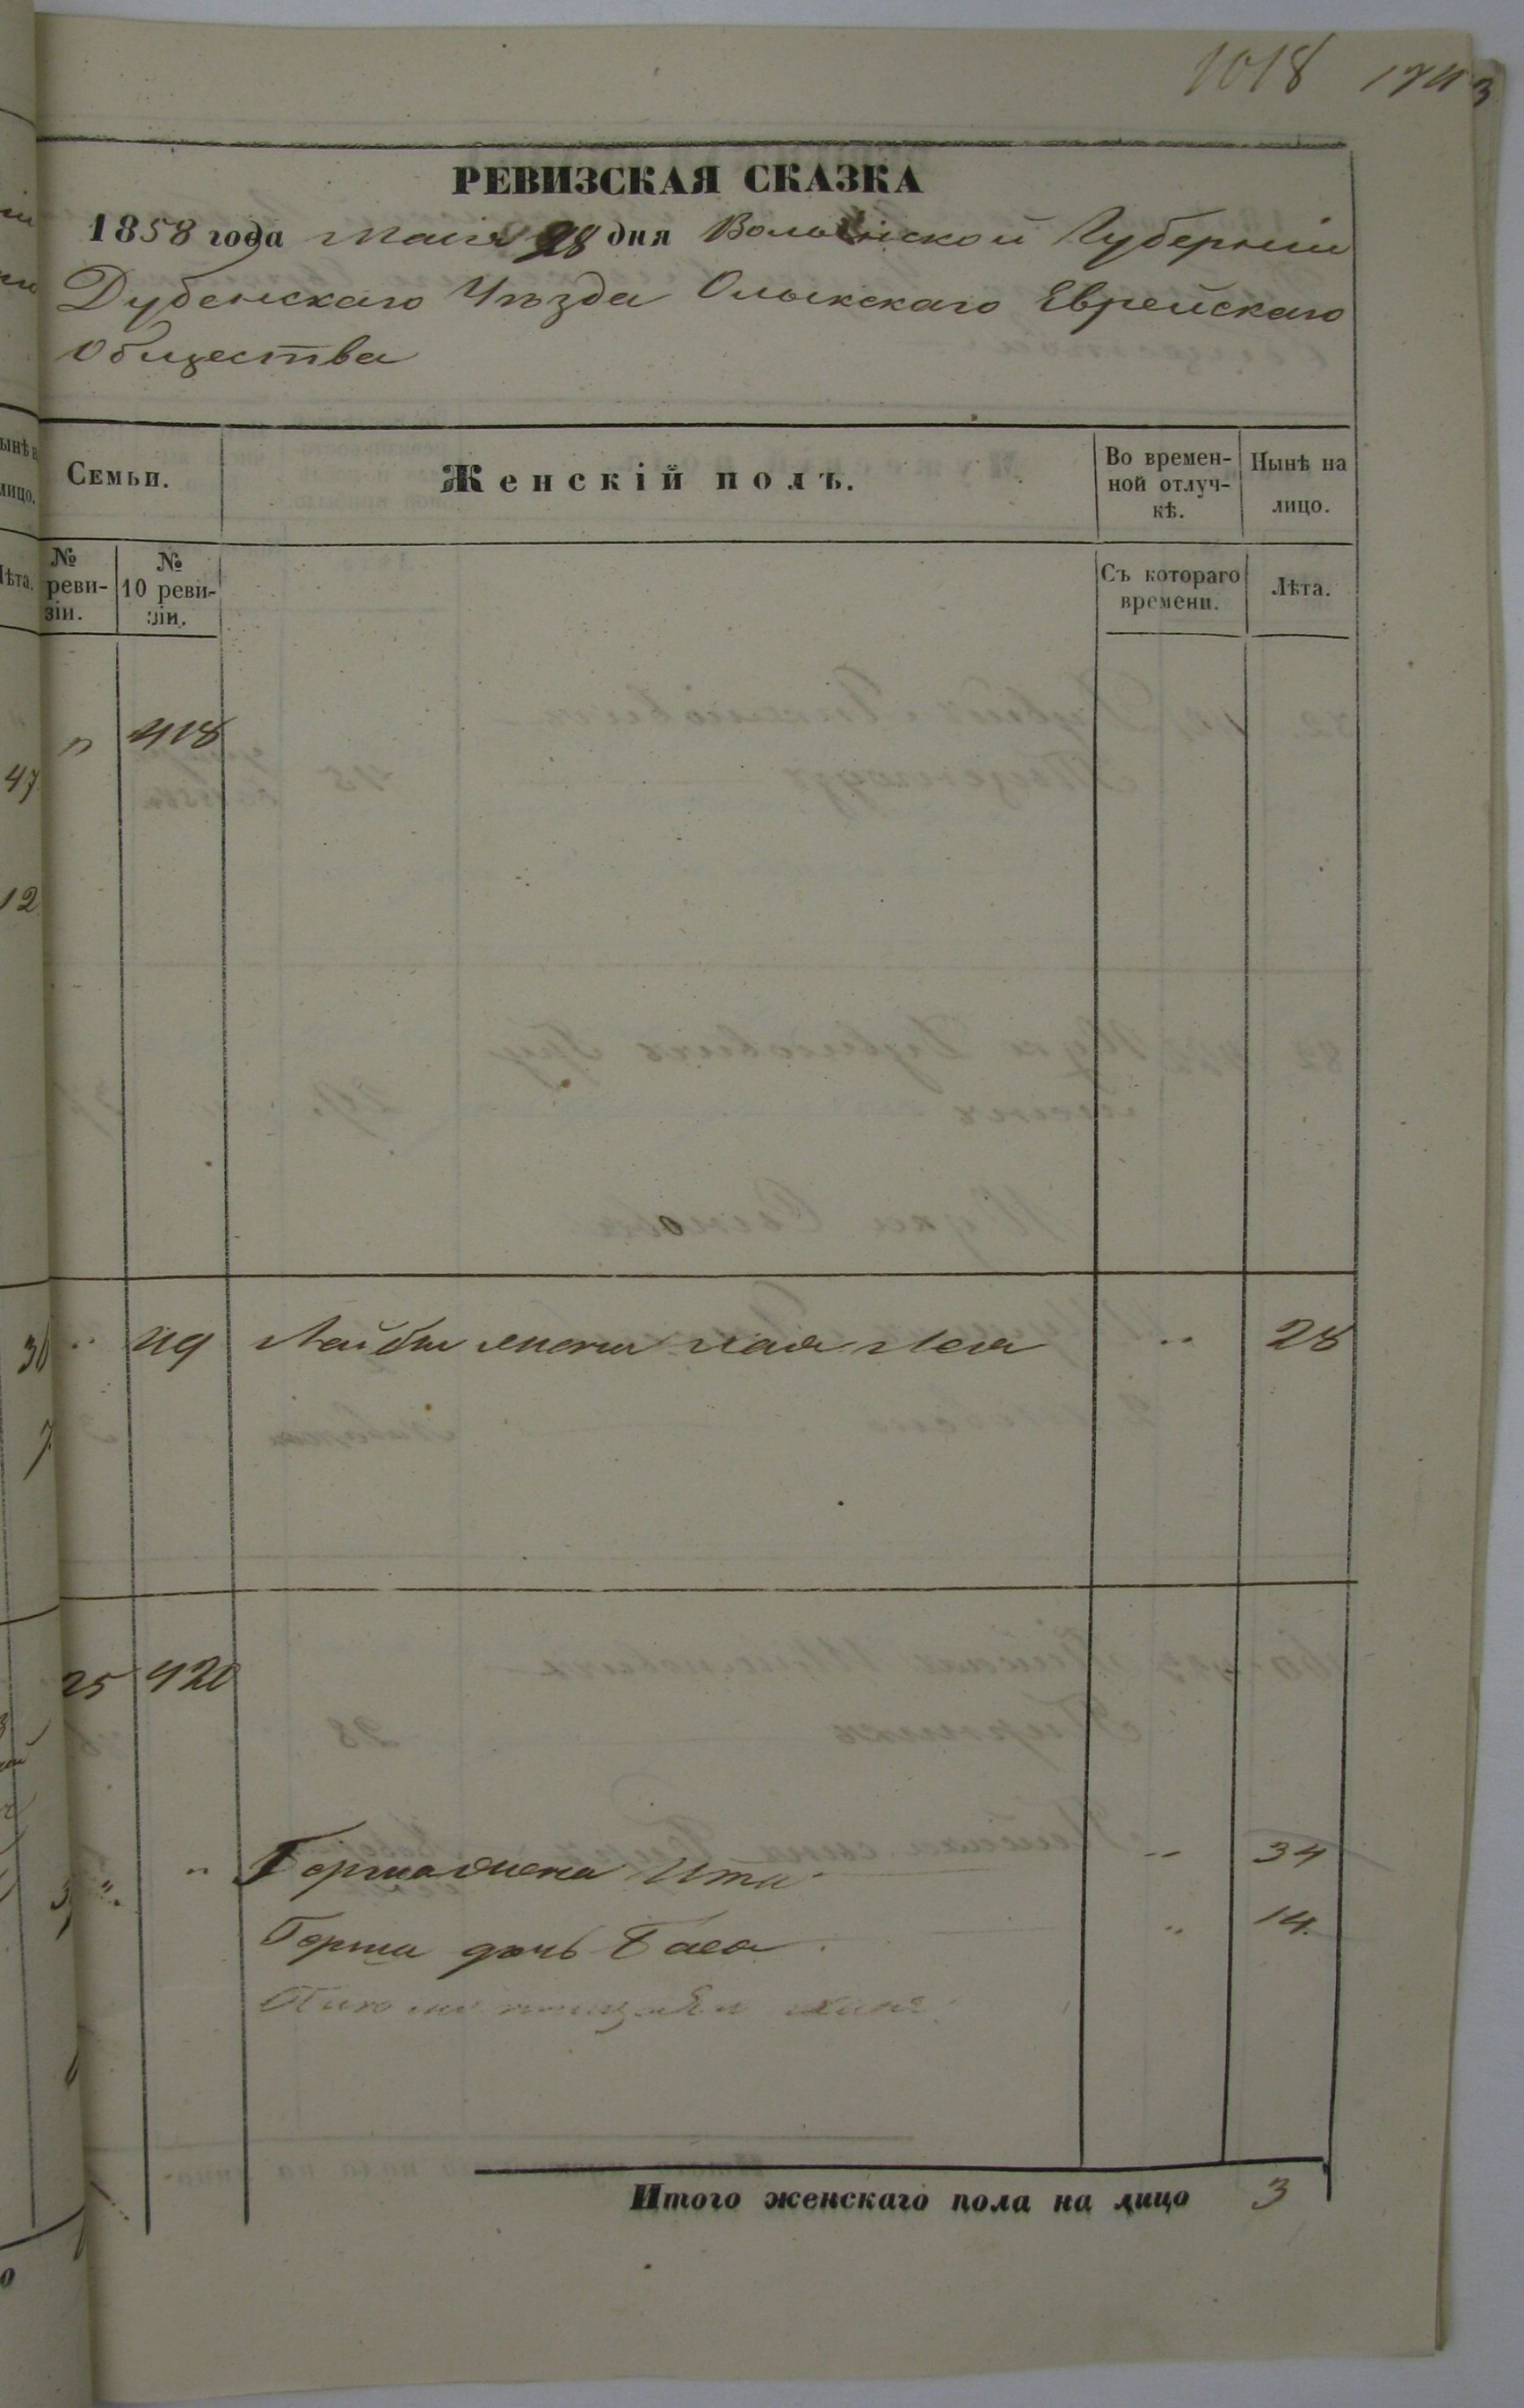 1018
РЕВИЗСКАЯ СКАЗКА
1858 года маія 28 дня Волынской Губерніи
Дубенскаго Уѣзда Олыкскаго Еврейскаго
Общества
Семьи.
Женскій полъ.
Во времен-
ной отлуч-
кѣ.
Нынѣ на
лицо.
№
реви-
зіи.
№
10 реви-
зіи.
Съ котораго
времени.
Лѣта.
" 418
" 419 Лейбы жена Хая Леа " 28
25 420
" " Герша жена Ита " 34
Герша дочь Баса " 14.
Итого женскаго пола на лицо 3